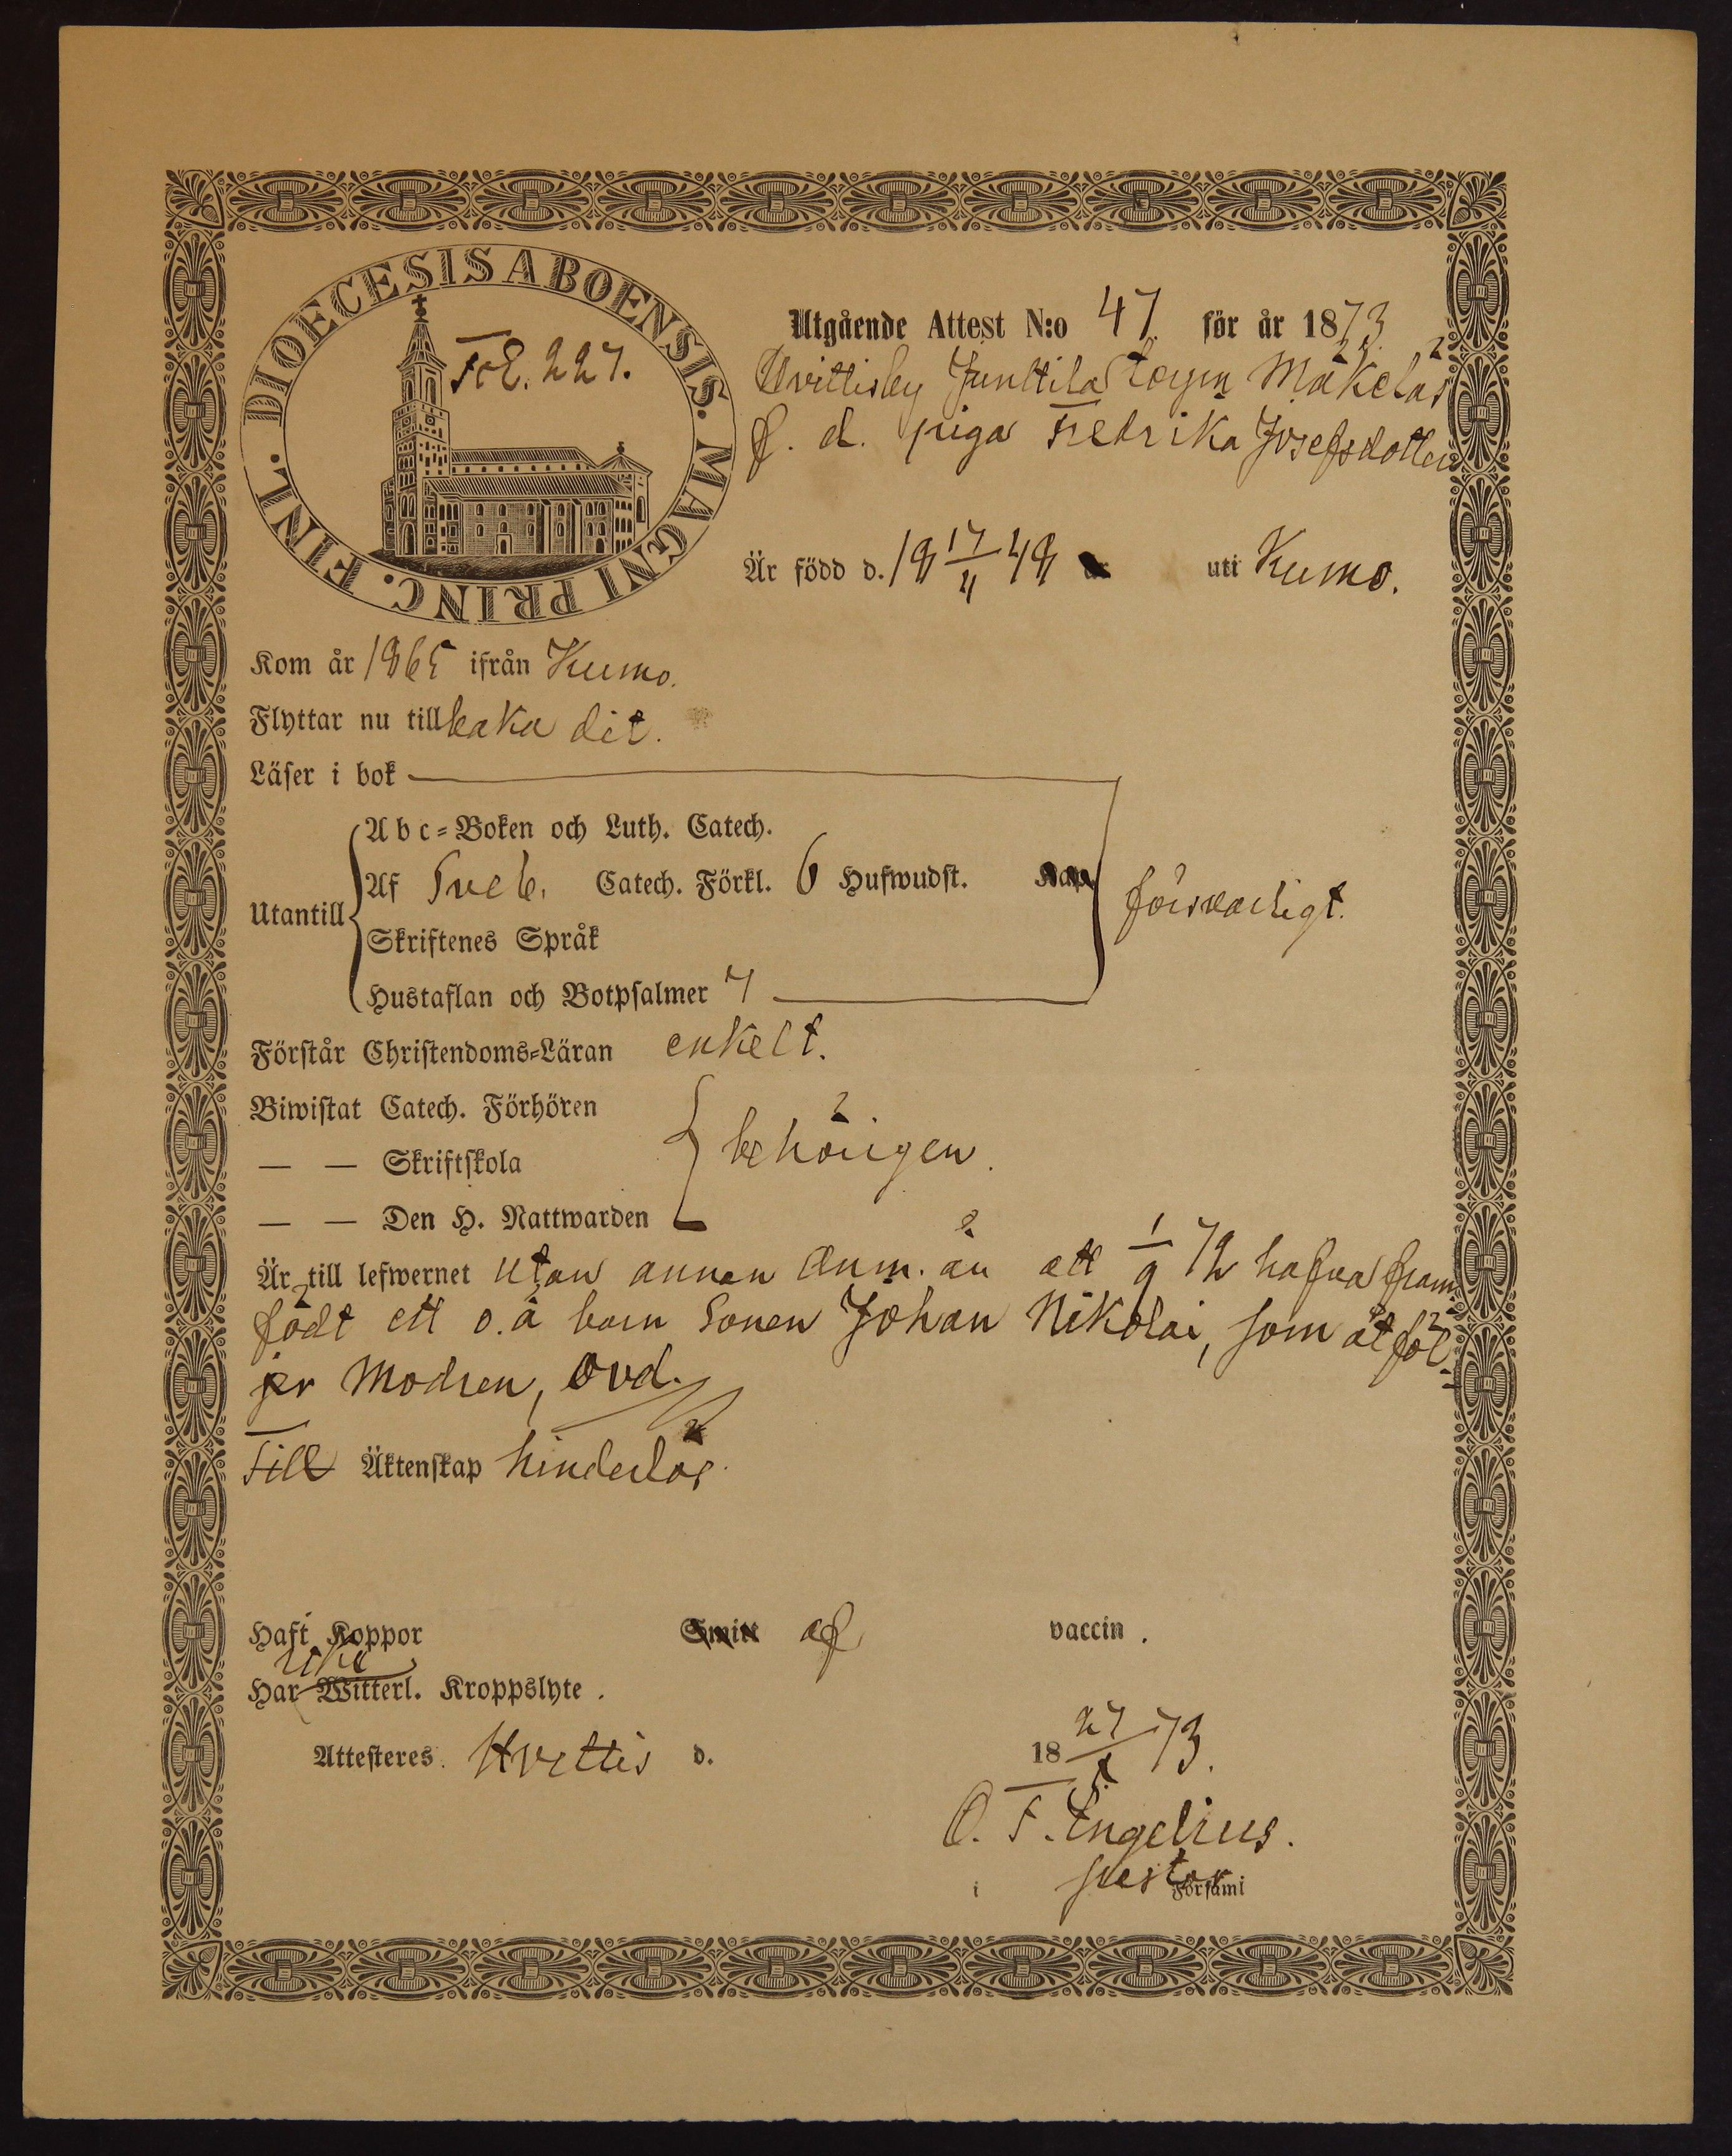 DIOECESIS ABOENSIS. MAGNI PRINC. FINL.
Fol. 227.
Utgående Attest N:o 47 för år 1873.
Hvittisby Junttila torpm Mäkeläs
f. d. piga Fredrika Josefsdotter
Är född d. 18 17/11 48 uti Kumo.
Kom år 1865 ifrån Kumo.
Flyttar nu tillbaka dit.
Läser i bok
Utantill
Abc=Boken och Luth. Catech.
Af Sveb. Catech. Förkl. 6 Hufwudst. Kap.
försvarligt.
Skriftenes Språk
Hustaflan och Botpsalmer 7
Förstår Christendoms=Läran enkelt.
Biwistat Catech. Förhören
— — Skriftskola
behörigen.
— — Den H. Nattwarden
Är till lefwernet utan annan anm. än att 1/9 72 hafva fram
födt ett o. ä barn sonen Johan Nikolai, som åtföl
jer modren, ovd.
Till Äktenskap hinderlös.
Haft Koppor Smitt af vaccin.
icke
Har Witterl. Kroppslyte.
Attesteres Hvittis d. 18 27/ 73.
O. F. Engelius.
i Församl